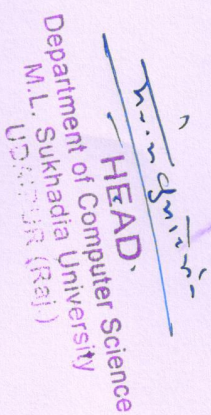 HEAD.
Department of Computer Science
M.L. Sukhadia University
UDAIPUR (Raj.)